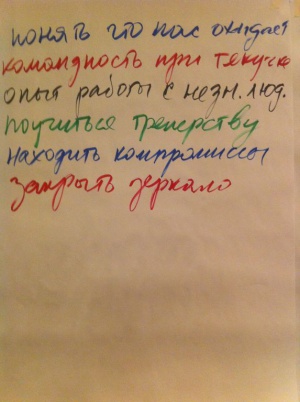 понять что нас ожидает
командность при текучке
опыт работы с незн. люд.
поучиться тренерству
находить компромиссы
закрыть зеркало